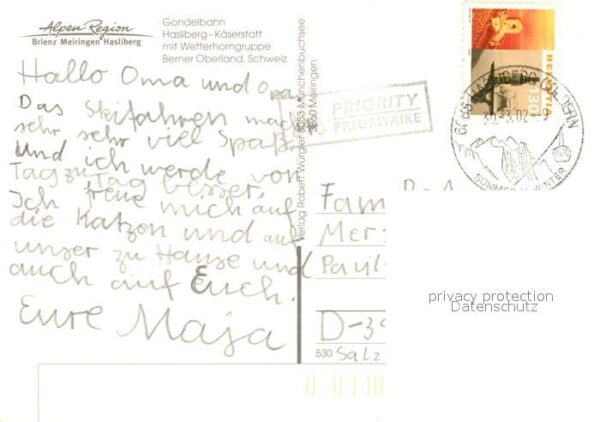 Alpen Region
Brienz Meiringen Hasliberg
Gondelbahn
Hasliberg-Käserstatt
mit Wetterhorngruppe
Berner Oberland, Schweiz
Hallo Oma und Opa
Das Skifahren macht
sehr sehr viel Spaß
Und ich werde von
Tag zu Tag besser.
Ich freue mich auf
die Katzen und auf
unser zu Hause und
auch auf Euch.
Eure Maja
Verlag Robert Würgler 3053 Münchenbuchsee
3860 Meiringen
PRIORITY
PRIORITAIRE
HELVETIA
130
SOMMER WINTER
Fam
Mer
Paul
D-39
530
Salz
privacy protection
Datenschutz